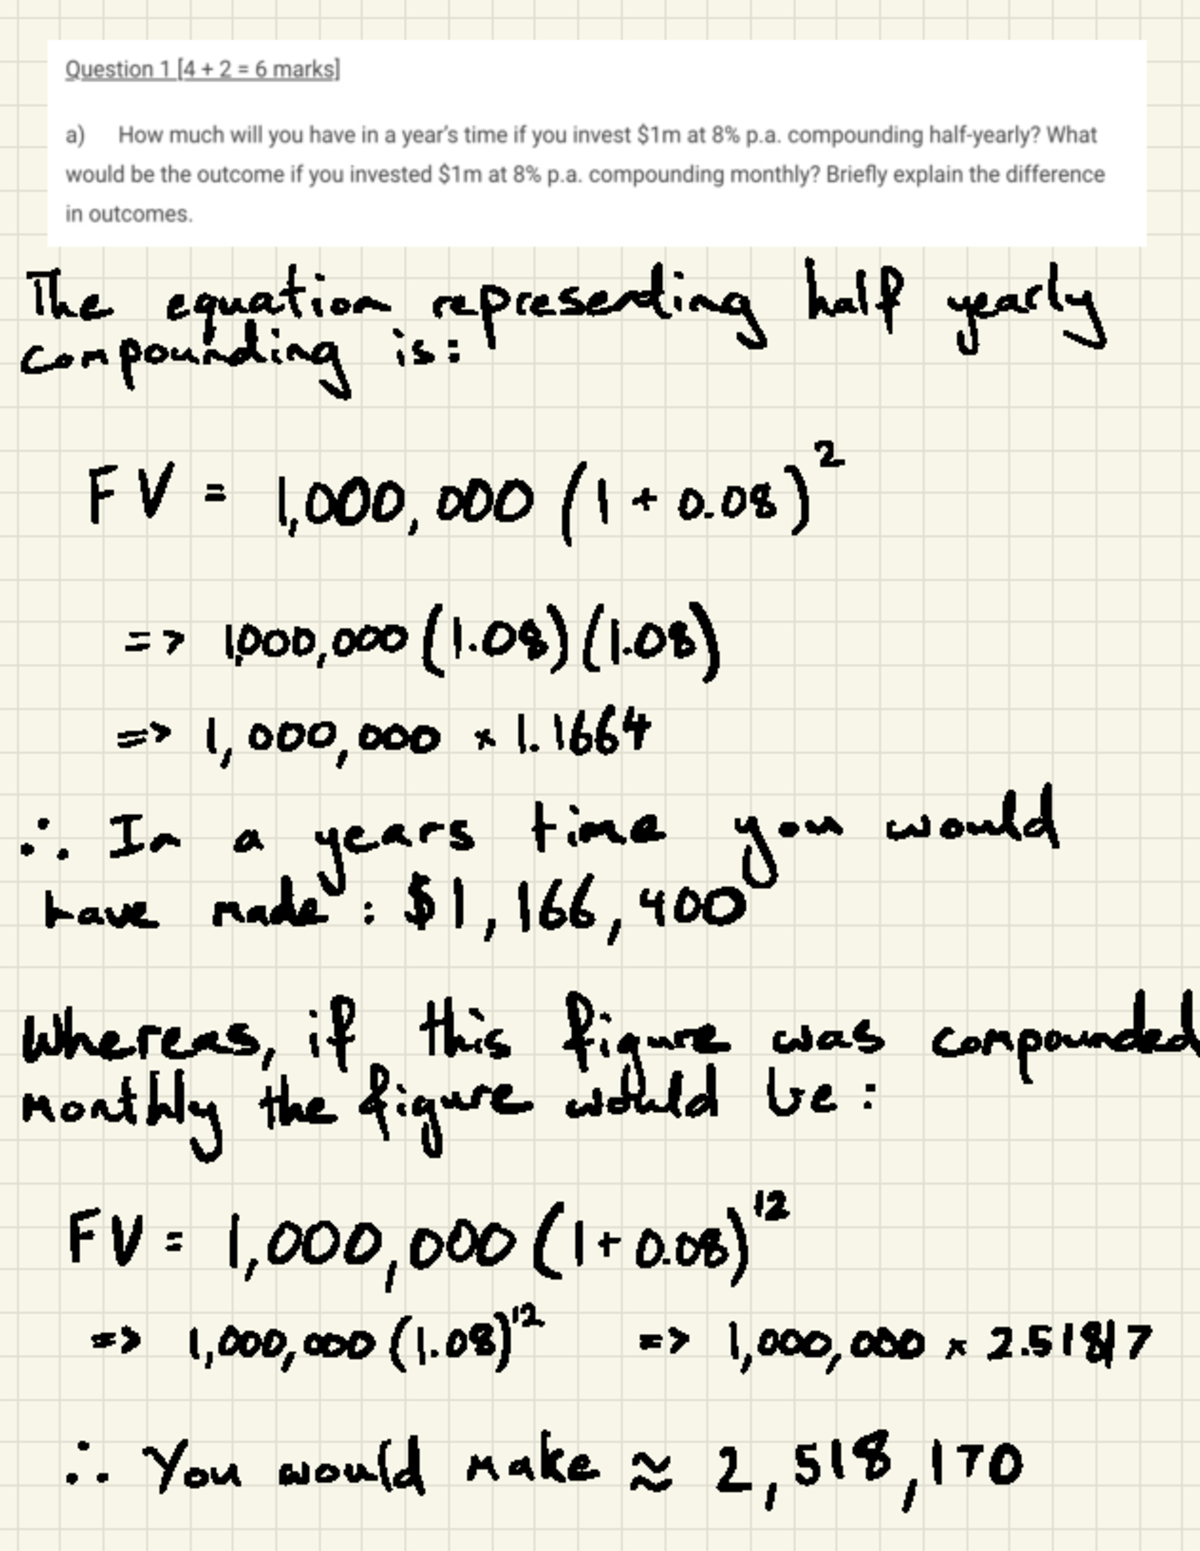 Question 1 [4 + 2 = 6 marks]
a) How much will you have in a year's time if you invest $1m at 8% p.a. compounding half-yearly? What
would be the outcome if you invested $1m at 8% p.a. compounding monthly? Briefly explain the difference
in outcomes.
The equation representing half yearly
compounding is:
FV = 1,000,000 (1 + 0.08)²
=> 1,000,000 (1.08)(1.08)
=> 1,000,000 × 1.1664
∴ In a years time you would
have made: $1,166,400
Whereas, if this figure was compounded
monthly the figure would be:
FV = 1,000,000 (1 + 0.08)¹²
=> 1,000,000 (1.08)¹² => 1,000,000 × 2.51817
∴ You would make ≈ 2,518,170